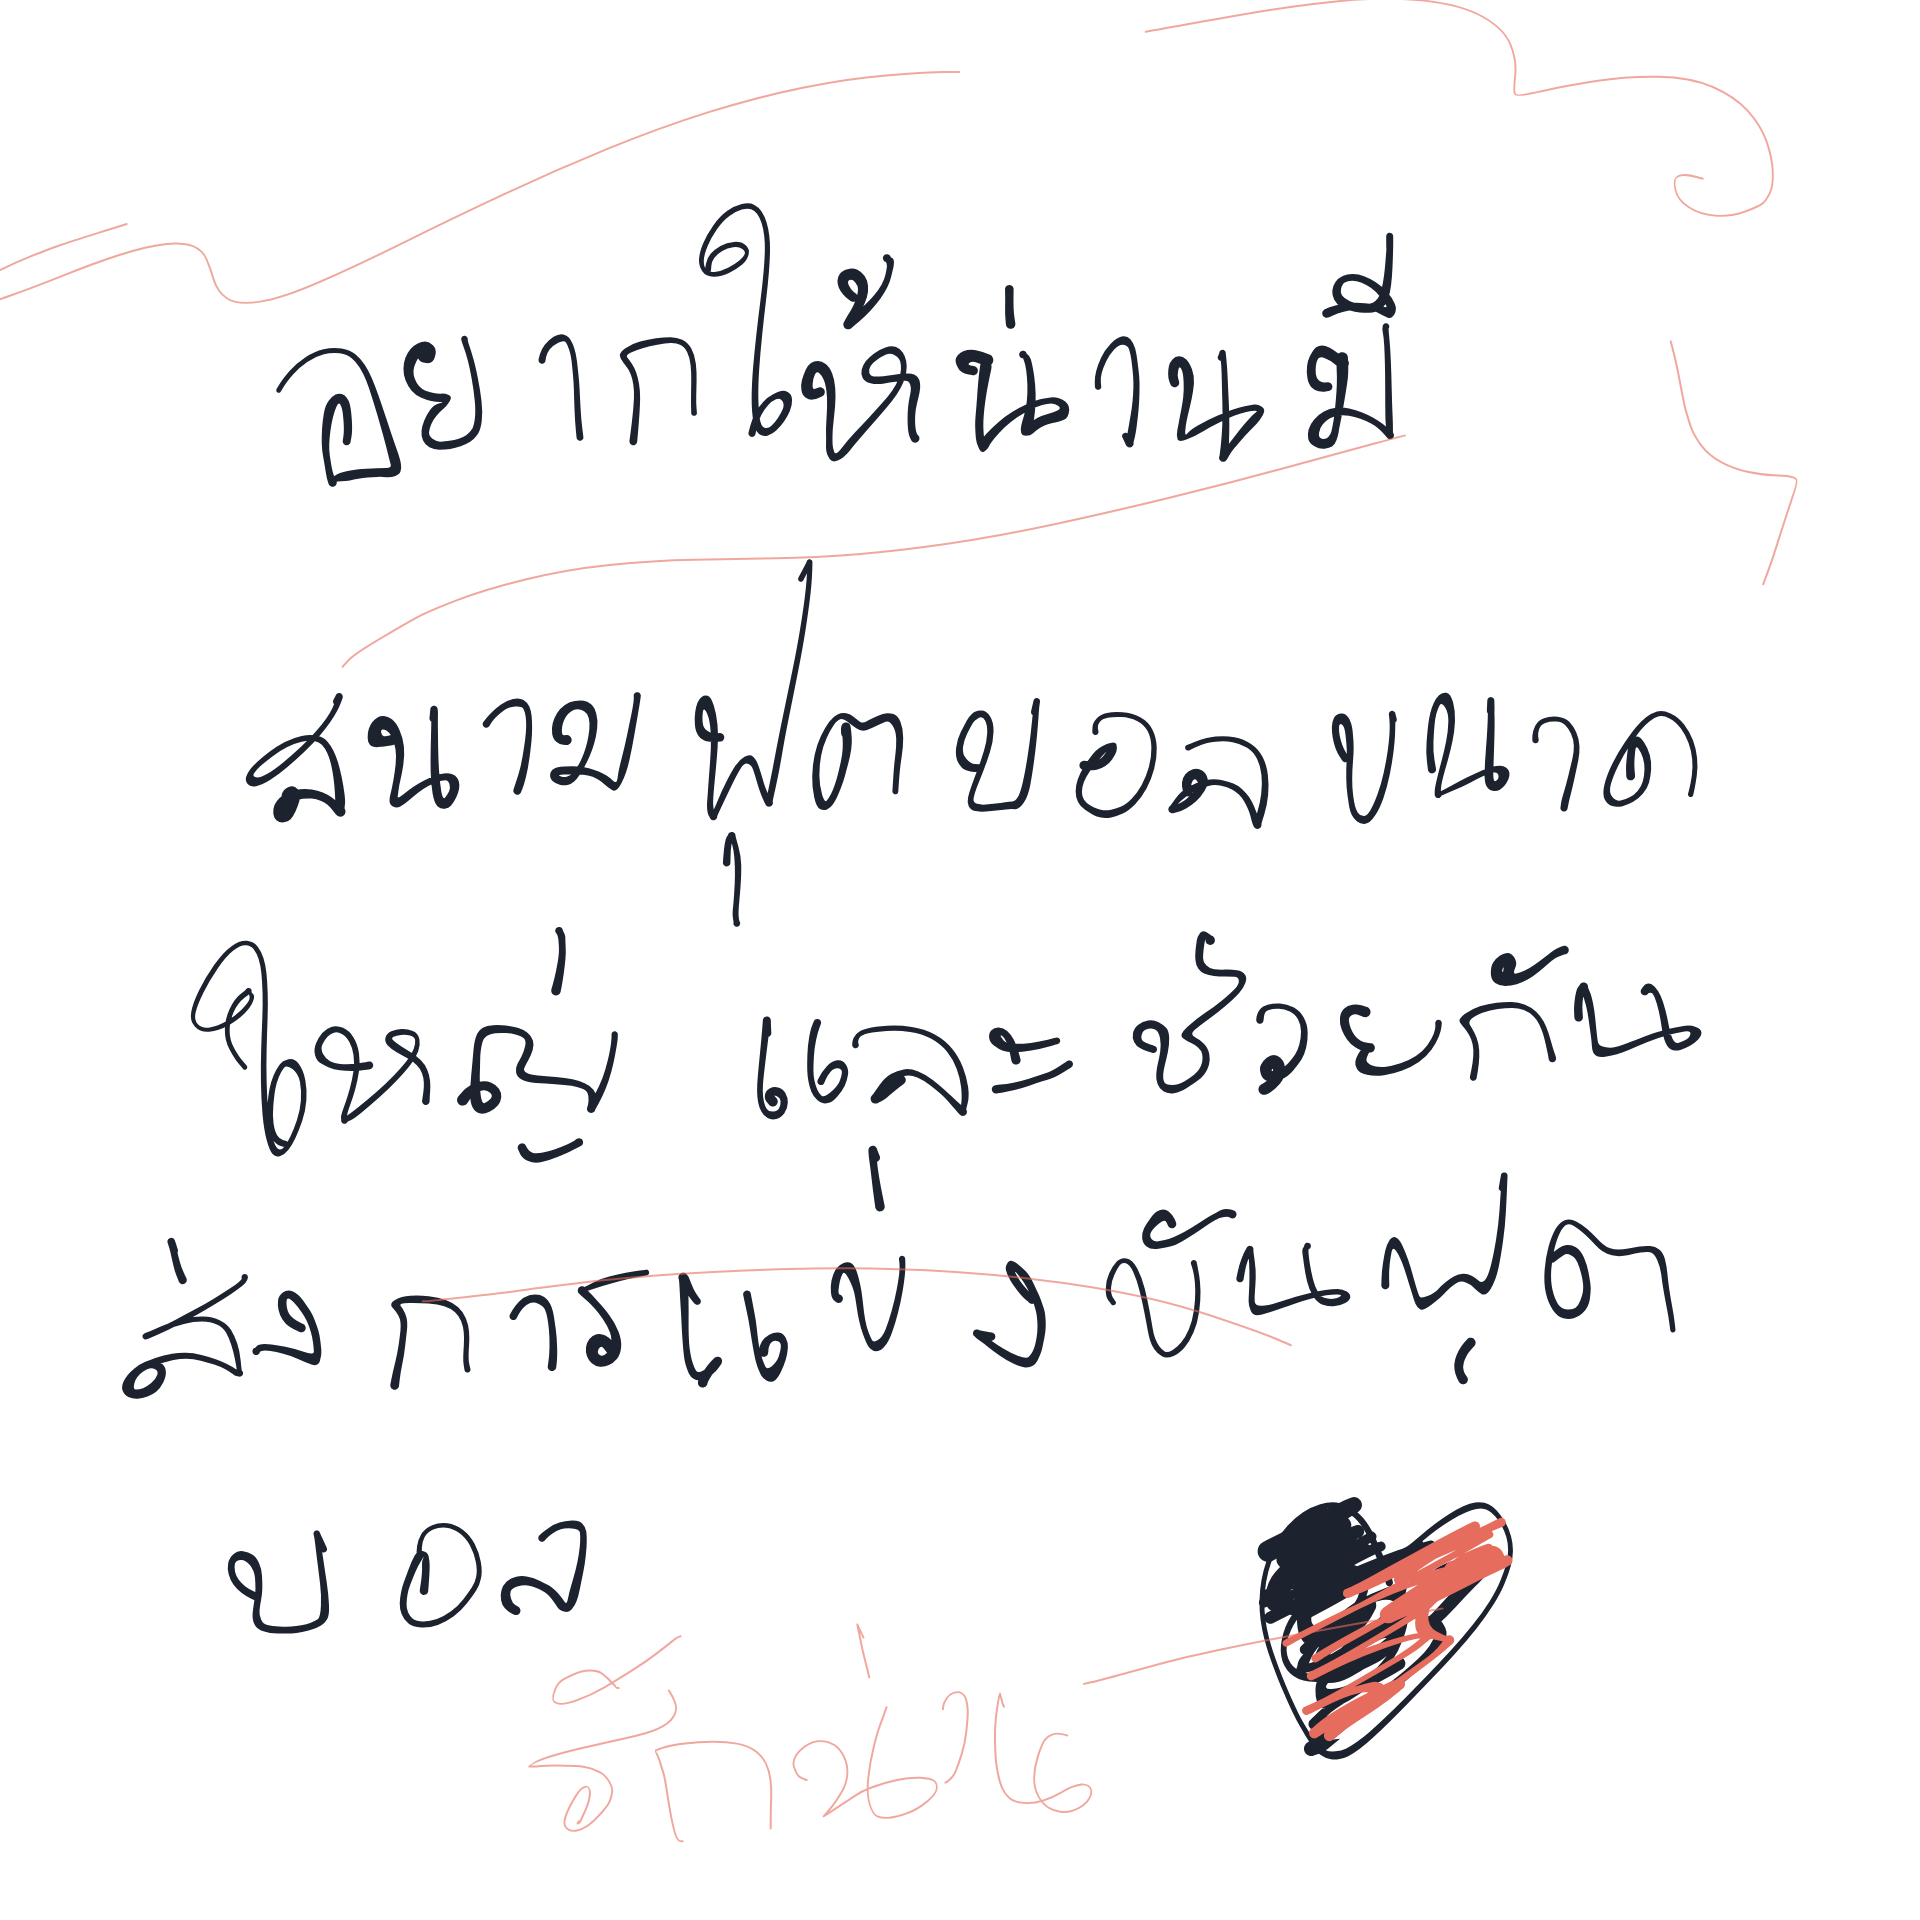 อยากให้น่านมี
สนามฟุตบอลขนาด
ใหญ่ และช้วยกัน
ส่งการแข่งขันฟุต
บอล
รักน่าน